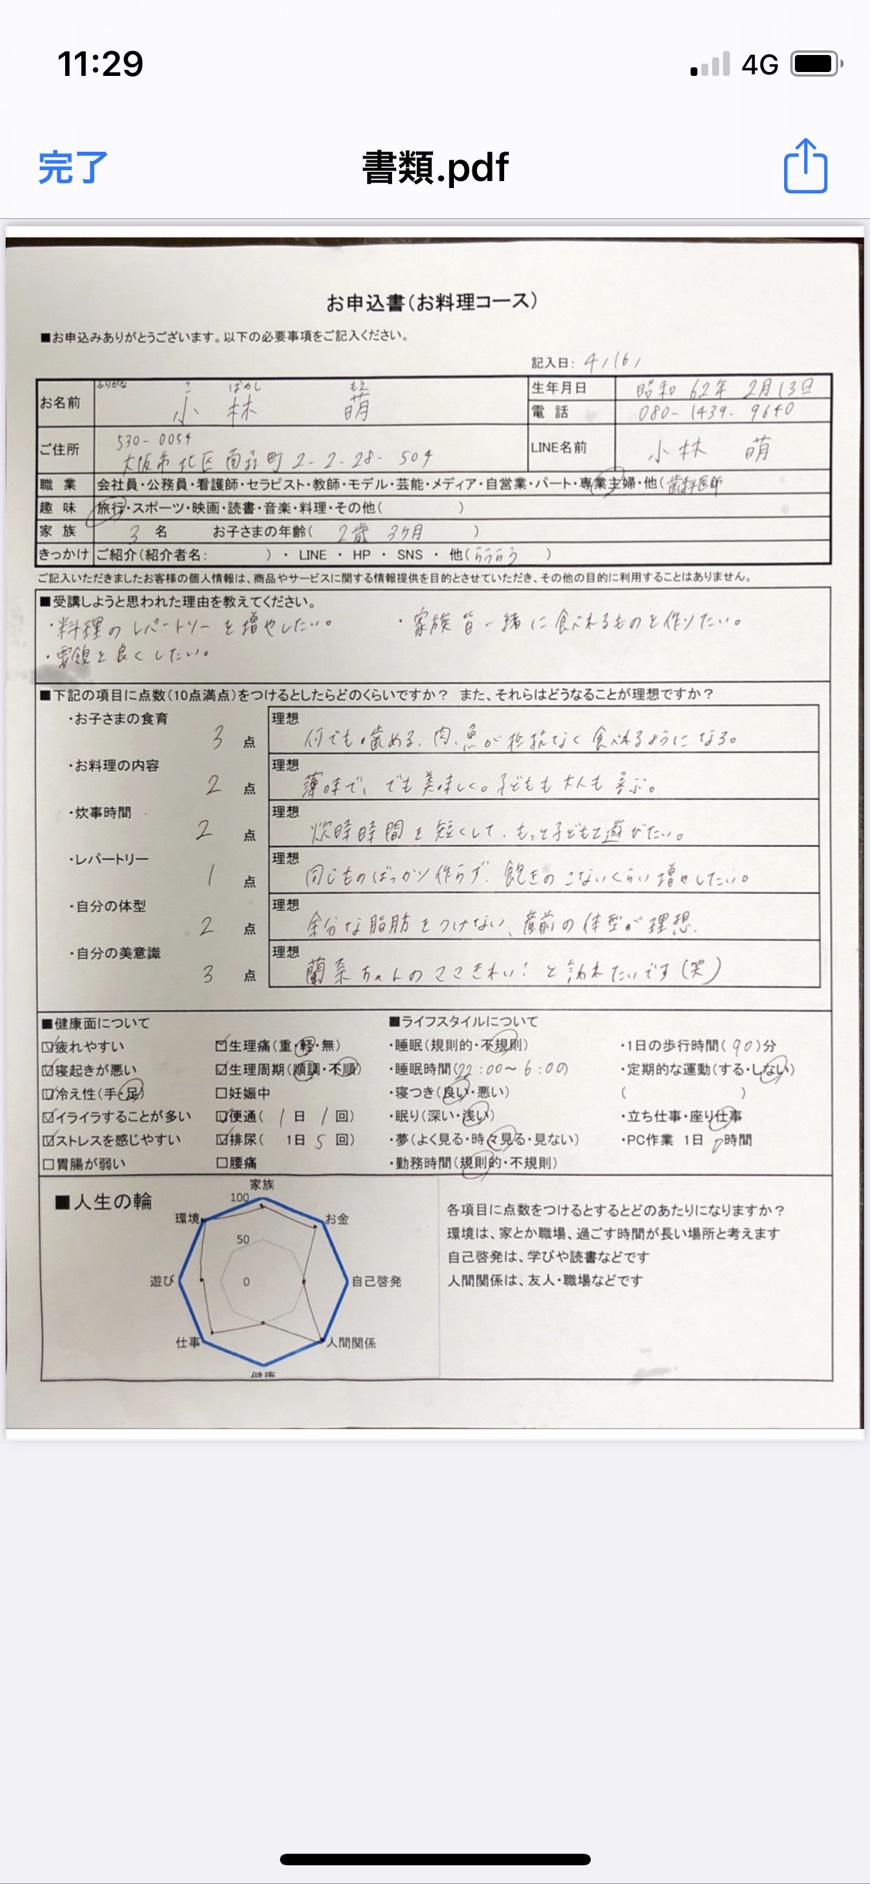 11:29
4G
完了
書類.pdf
お申込書(お料理コース)
■お申込みありがとうございます。以下の必要事項をご記入ください。
記入日: 4/16/
ふりがな こ ばやし もえ
お名前 小 林 萌
生年月日 昭和 62年 2月13日
電 話 080-1439-9640
530-0054
ご住所 大阪市北区南森町 2-2-28-504
LINE名前 小林 萌
職 業 会社員・公務員・看護師・セラピスト・教師・モデル・芸能・メディア・自営業・パート・専業主婦・他(歯科医師
趣 味 旅行・スポーツ・映画・読書・音楽・料理・その他( )
家 族 3 名 お子さまの年齢( 2歳 3ヶ月 )
きっかけ ご紹介(紹介者名: )・ LINE ・ HP ・ SNS ・ 他( )
ご記入いただきましたお客様の個人情報は、商品やサービスに関する情報提供を目的とさせていただき、その他の目的に利用することはありません。
■受講しようと思われた理由を教えてください。
・料理のレパートリーを増やしたい。 ・家族皆一緒に食べれるものを作りたい。
・要領を良くしたい。
■下記の項目に点数(10点満点)をつけるとしたらどのくらいですか? また、それらはどうなることが理想ですか?
・お子さまの食育 3 点 理想 何でも噛める、肉、魚が抵抗なく食べれるようになる。
・お料理の内容 2 点 理想 薄味で、でも美味しく。子どもも大人も喜ぶ。
・炊事時間 2 点 理想 炊事時間を短くして、もっと子どもと遊びたい。
・レパートリー 1 点 理想 同じものばっかり作らず、飽きのこないくらい増やしたい。
・自分の体型 2 点 理想 余分な脂肪をつけない、産前の体型が理想.
・自分の美意識 3 点 理想 蘭奈ちゃんのママきれい!と言われたいです(笑)
■健康面について
☑疲れやすい ☑生理痛(重・軽・無)
☑寝起きが悪い ☑生理周期(順調・不順)
☑冷え性(手・足) □妊娠中
☑イライラすることが多い ☑便通( 1日 1回)
☑ストレスを感じやすい ☑排尿( 1日 5 回)
□胃腸が弱い □腰痛
■ライフスタイルについて
・睡眠(規則的・不規則) ・1日の歩行時間(90)分
・睡眠時間(22:00〜6:00 ・定期的な運動(する・しない)
・寝つき(良い・悪い) ( )
・眠り(深い・浅い) ・立ち仕事・座り仕事
・夢(よく見る・時々見る・見ない) ・PC作業 1日 0時間
・勤務時間(規則的・不規則)
■人生の輪
家族
100
環境 お金
50
遊び 0 自己啓発
仕事 人間関係
健康
各項目に点数をつけるとするとどのあたりになりますか?
環境は、家とか職場、過ごす時間が長い場所と考えます
自己啓発は、学びや読書などです
人間関係は、友人・職場などです